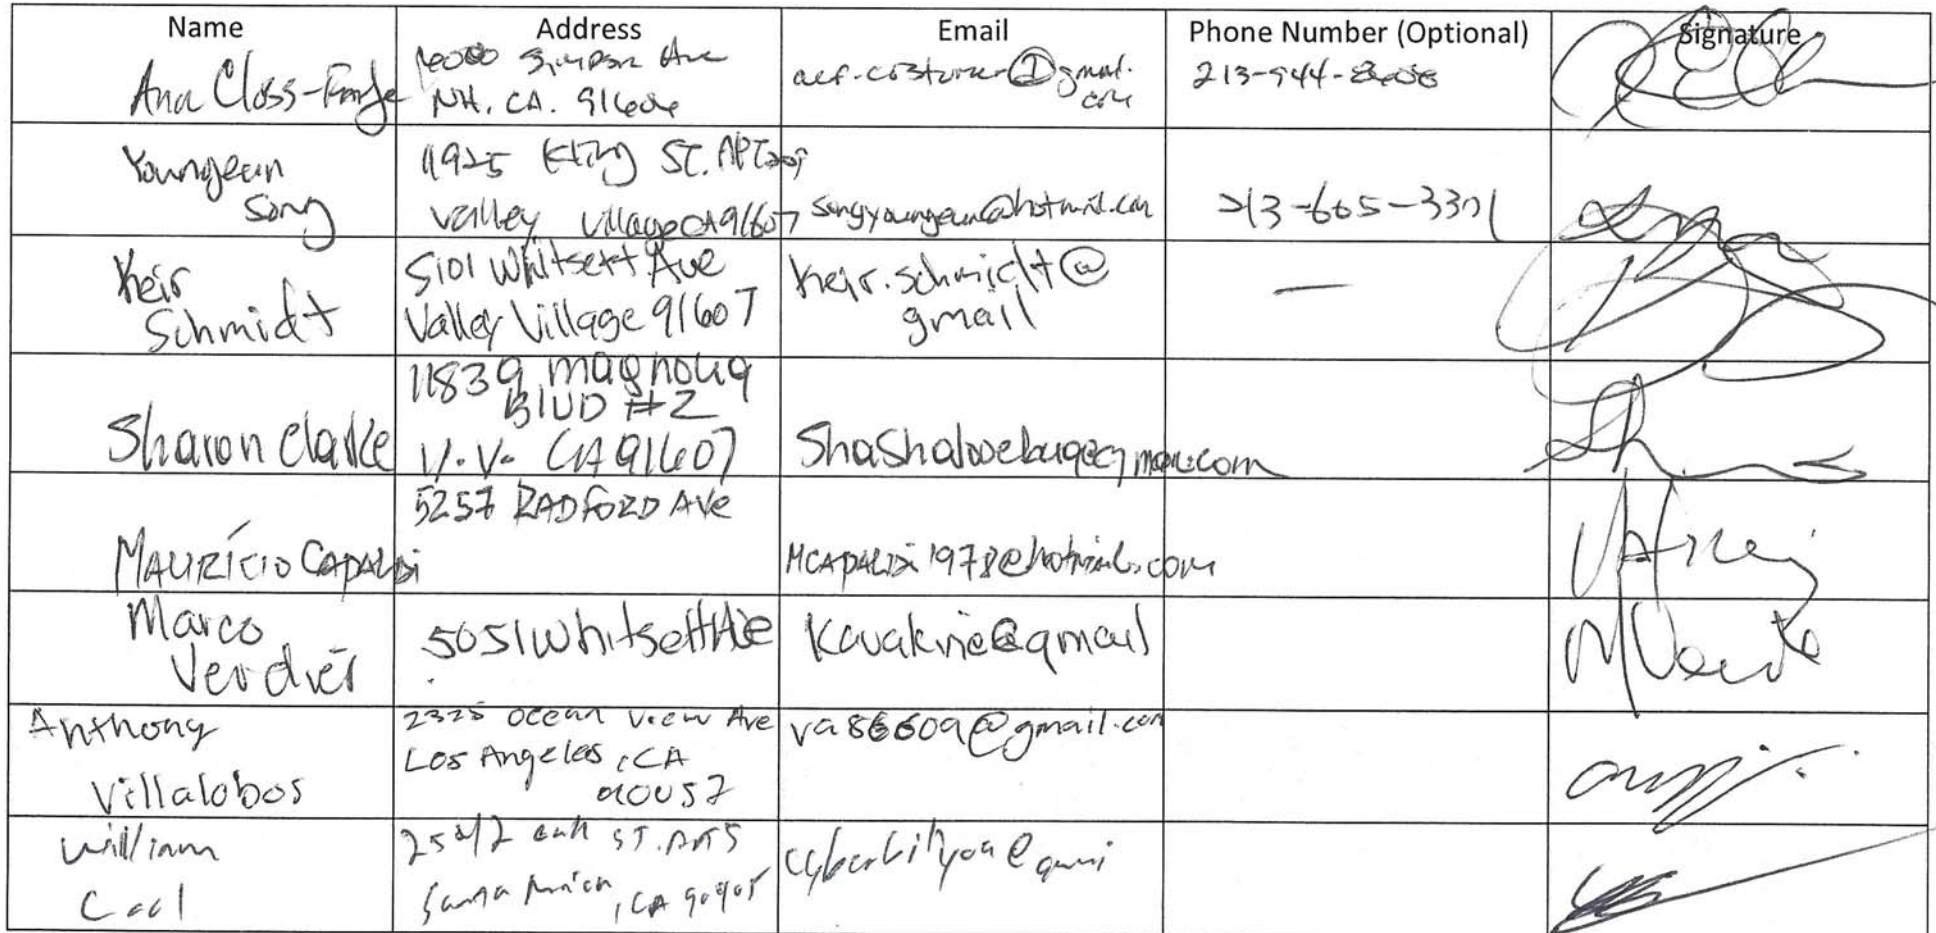 Name Address Email Phone Number (Optional) Signature
Ana Closs-
Simpson Ave
NH. CA. 91606
gmail.
com
213-944-
Youngeun
Song
11925 Kling ST. APT 209
Valley Village CA 91607
songyoungeun@hotmail.com
213-605-3301
Keir
Schmidt
5101 Whitsett Ave
Valley Village 91607
Keir.schmidt@
gmail
—
Sharon Clarke
11839 magnolia
BlVD #2
V.V. CA 91607
MAURÍCIO CAPALDI
5257 RADFORD AVe
MCAPALDI1978@hotmail.com
Marco
Verdier
5051 Whitsett Ave
Kavakvie@gmail
Anthony
Villalobos
2325 Ocean View Ave
Los Angeles, CA
90057
va86609@gmail.com
William
ST. APT 5
Santa Monica, CA 90405